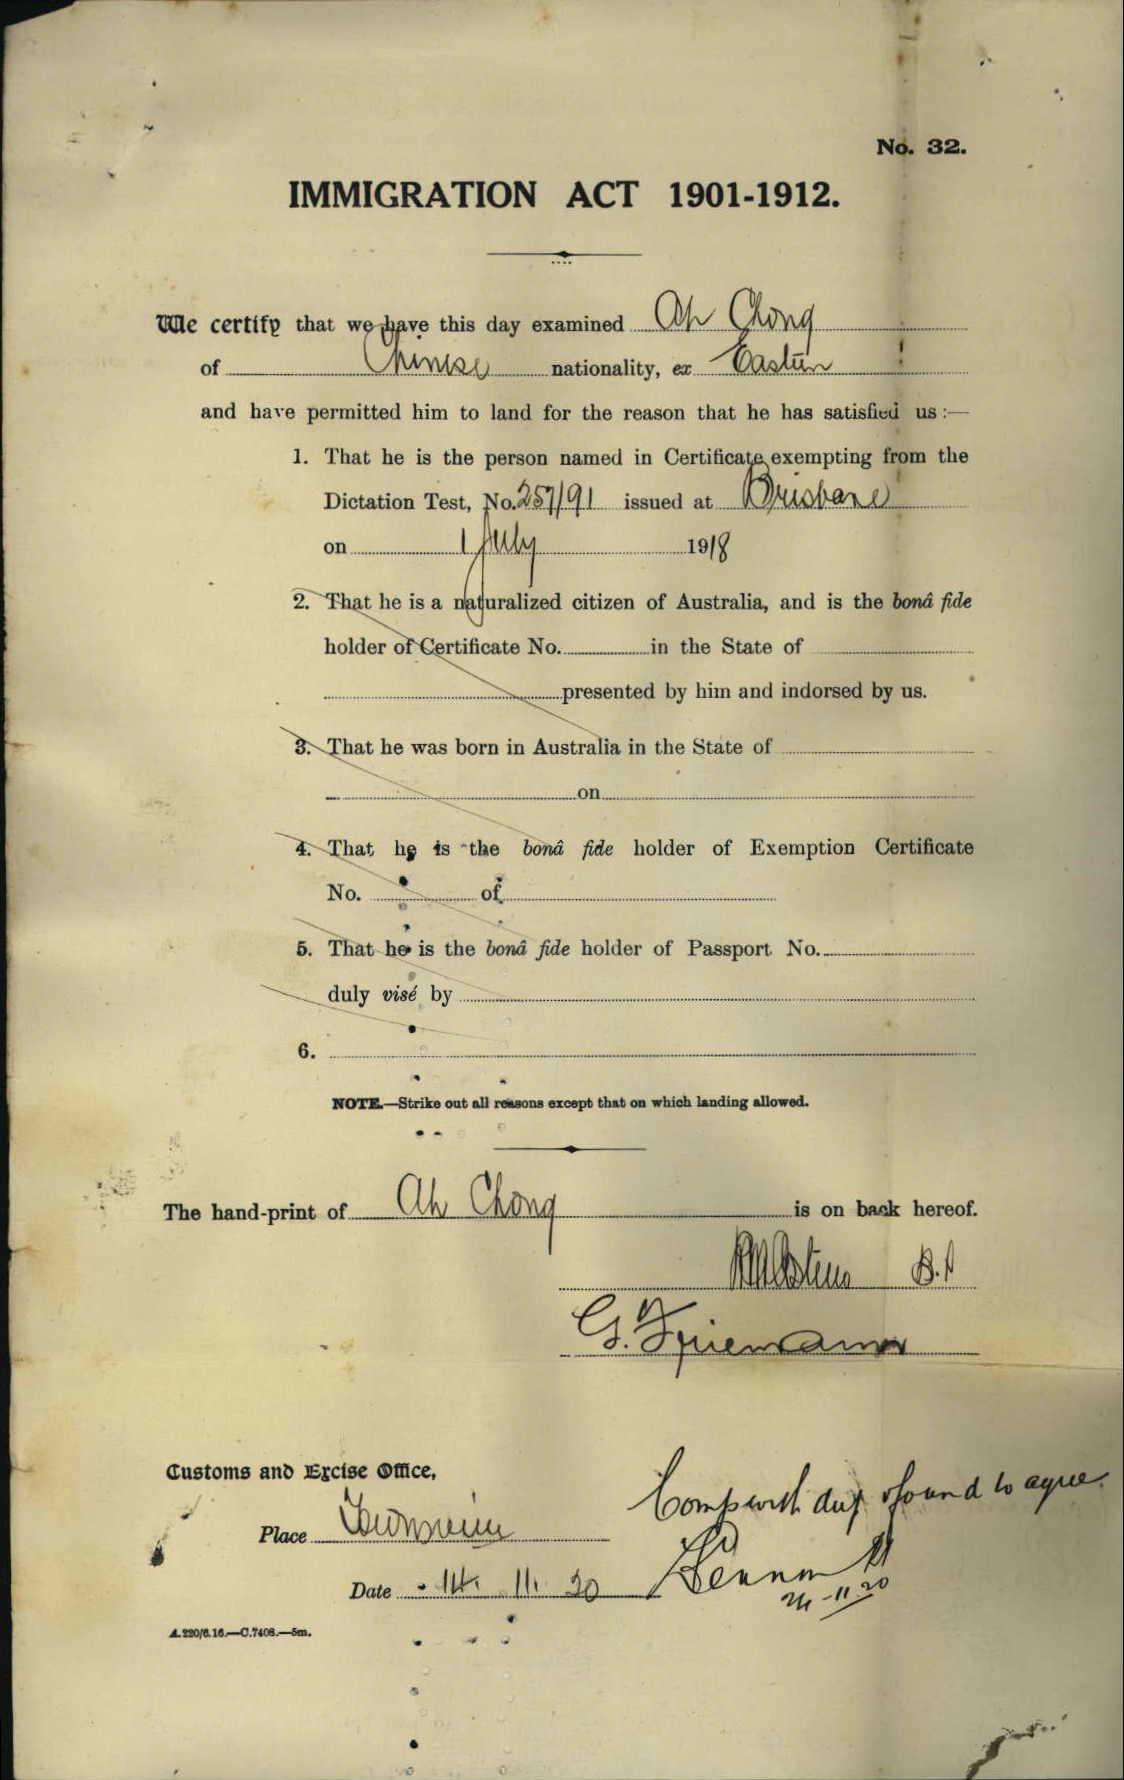 No. 32.
IMMIGRATION ACT 1901-1912.
We certify that we have this day examined Ah Chong
of Chinese nationality, ex Eastern
and have permitted him to land for the reason that he has satisfied us :—
1. That he is the person named in Certificate exempting from the
Dictation Test, No. 257/91 issued at Brisbane
on 1 July 1918
2. That he is a naturalized citizen of Australia, and is the bonâ fide
holder of Certificate No. in the State of
presented by him and indorsed by us.
3. That he was born in Australia in the State of
on
4. That he is the bonâ fide holder of Exemption Certificate
No. of
5. That he is the bonâ fide holder of Passport No.
duly visé by
6.
NOTE.—Strike out all reasons except that on which landing allowed.
The hand-print of Ah Chong is on back hereof.
G. Friemann
Customs and Excise Office,
Comp with dup & found to agree.
Place
Date 14. 11. 20
24-11-20
A.220/6.16.—C.7408.—5m.